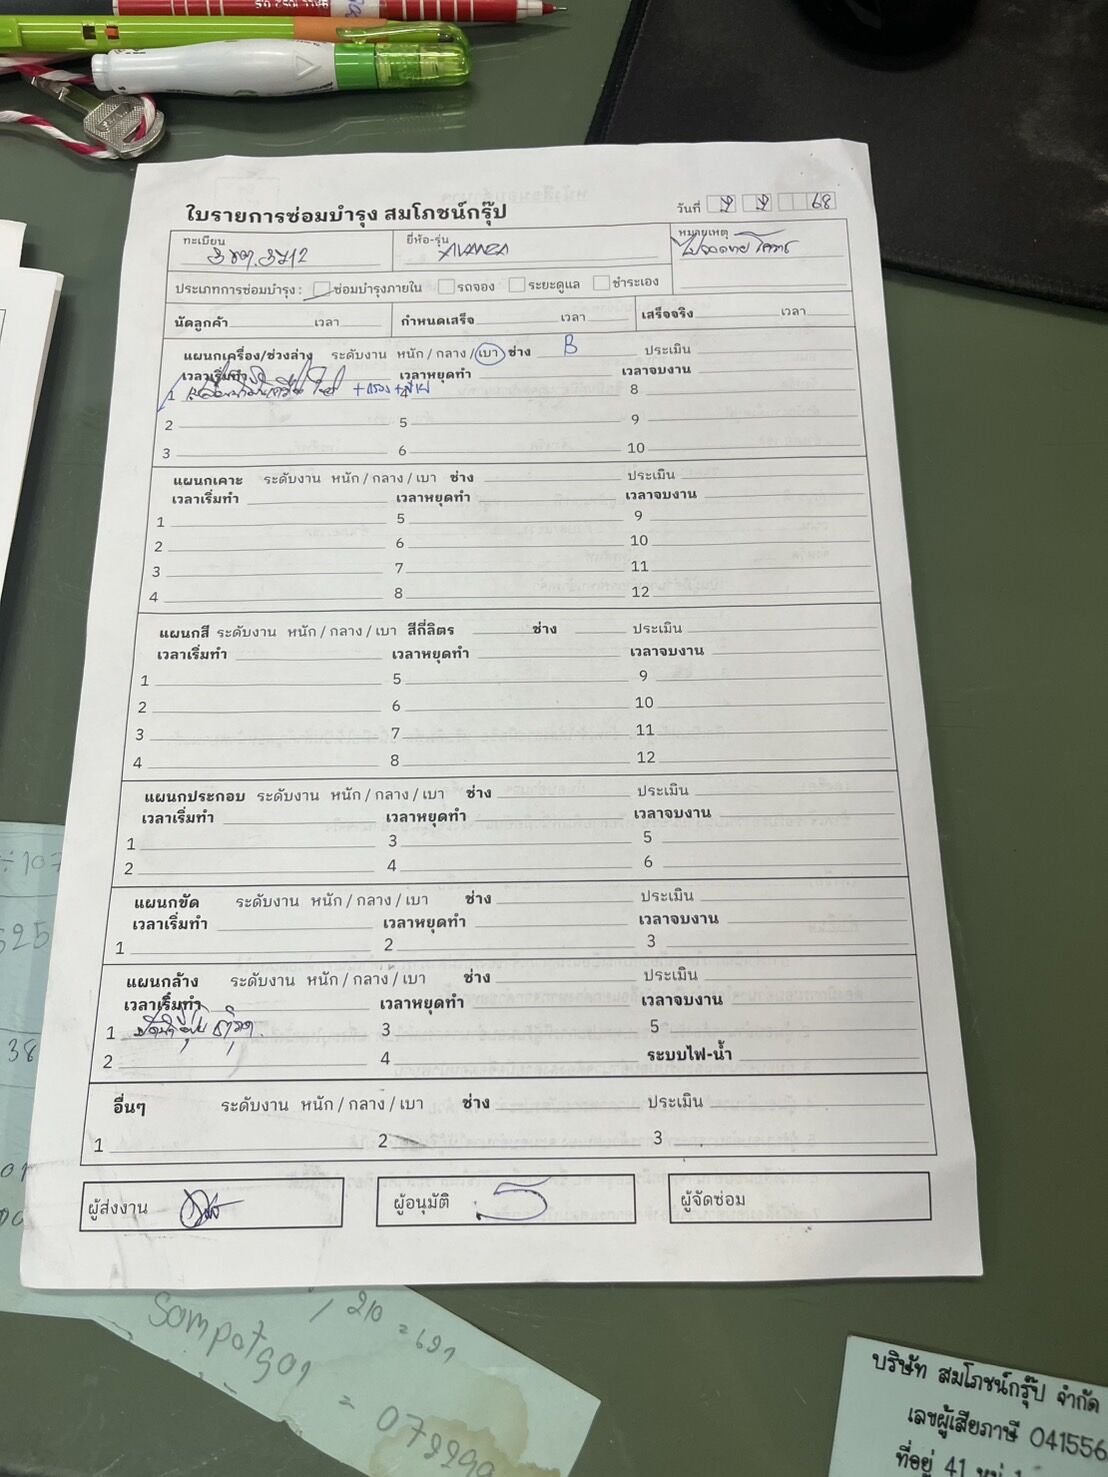 ใบรายการซ่อมบำรุง สมโภชน์กรุ๊ป
วันที่ 68
ทะเบียน ยี่ห้อ-รุ่น หมายเหตุ
3712 AVANZA
ประเภทการซ่อมบำรุง : ซ่อมบำรุงภายใน รถจอง ระยะดูแล ชำระเอง
นัดลูกค้า เวลา กำหนดเสร็จ เวลา เสร็จจริง เวลา
แผนกเครื่อง/ช่วงล่าง ระดับงาน หนัก / กลาง / เบา ช่าง B ประเมิน
เวลาเริ่มทำ เวลาหยุดทำ เวลาจบงาน
1 +กรอง 4 8
2 5 9
3 6 10
แผนกเคาะ ระดับงาน หนัก / กลาง / เบา ช่าง ประเมิน
เวลาเริ่มทำ เวลาหยุดทำ เวลาจบงาน
1 5 9
2 6 10
3 7 11
4 8 12
แผนกสี ระดับงาน หนัก / กลาง / เบา สีกี่ลิตร ช่าง ประเมิน
เวลาเริ่มทำ เวลาหยุดทำ เวลาจบงาน
1 5 9
2 6 10
3 7 11
4 8 12
แผนกประกอบ ระดับงาน หนัก / กลาง / เบา ช่าง ประเมิน
เวลาเริ่มทำ เวลาหยุดทำ เวลาจบงาน
1 3 5
2 4 6
แผนกขัด ระดับงาน หนัก / กลาง / เบา ช่าง ประเมิน
เวลาเริ่มทำ เวลาหยุดทำ เวลาจบงาน
1 2 3
แผนกล้าง ระดับงาน หนัก / กลาง / เบา ช่าง ประเมิน
เวลาเริ่มทำ เวลาหยุดทำ เวลาจบงาน
1 3 5
2 4 ระบบไฟ-น้ำ
อื่นๆ ระดับงาน หนัก / กลาง / เบา ช่าง ประเมิน
1 2 3
ผู้ส่งงาน ผู้อนุมัติ ผู้จัดซ่อม
210 = 691
Sampot901
= 07
บริษัท สมโภชน์กรุ๊ป จำกัด
เลขผู้เสียภาษี 041556
ที่อยู่ 41